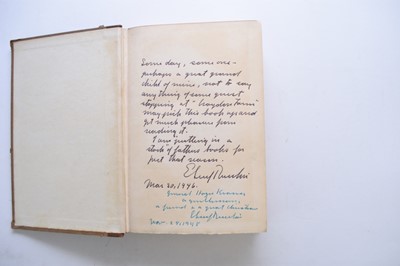 Some day, some one -
perhaps a great grand
child of mine, not to say
anything of some guest
stopping at "Croydon Farm"
may pick this book up and
get much pleasure from
reading it.
I am putting in a
stock of fathers books for
just that reason.
Mar 30, 1946.
General
a gentleman,
a friend & a great